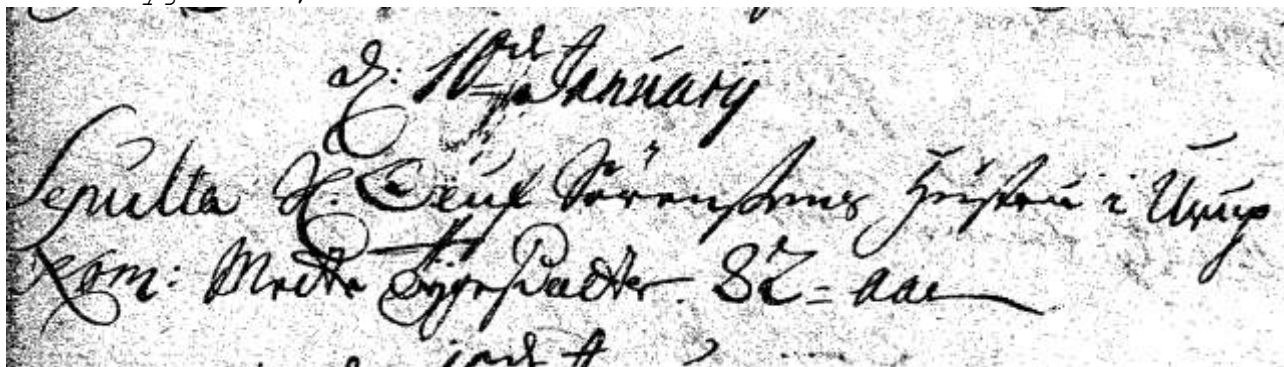 d: 10de January
Sepulta S. Oluf Sørensens Hustru i Urup
Nom: Mette Tygesdatter. 82 = aar